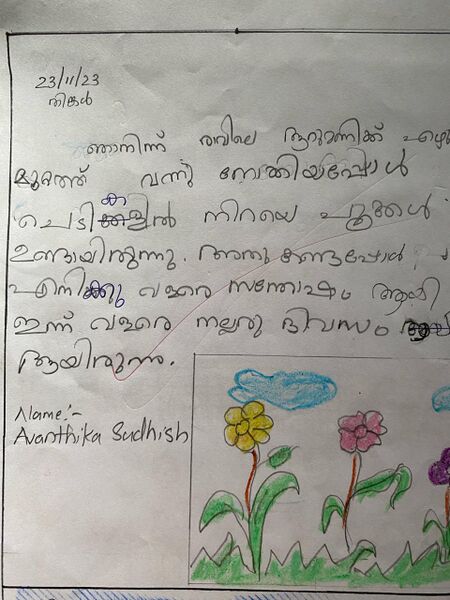 23/11/23
തിങ്കൾ
ഞാനിന്ന് രവിലെ ആറുമണിക്ക് എഴു
മുറത്ത് വന്നു നോക്കിയപ്പോൾ
കാ
ചെടിക്കളിൽ നിറയെ പൂക്കൾ
ഉണ്ടായിരുന്നു. അതു കണ്ടപ്പോൾ
എനിക്കു വളരെ സന്തോഷം ആയി
ഇന്ന് വളരെ നല്ലരു ദിവസം
ആയിരുന്നു.
Name:-
Avanthika Sudhish